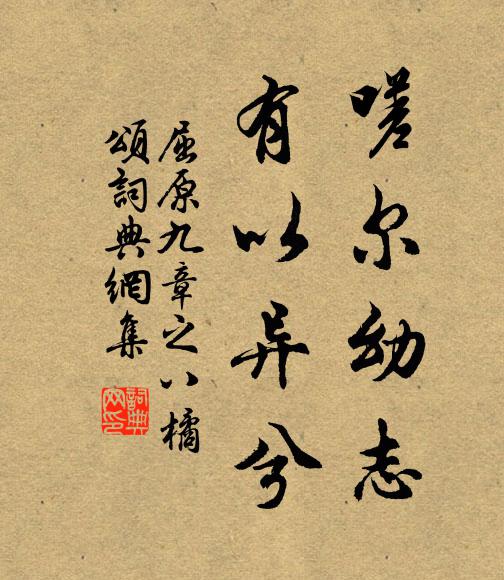 嗟尔幼志
有以异兮
屈原九章之八橘
頌詞典網集
詞典
网印